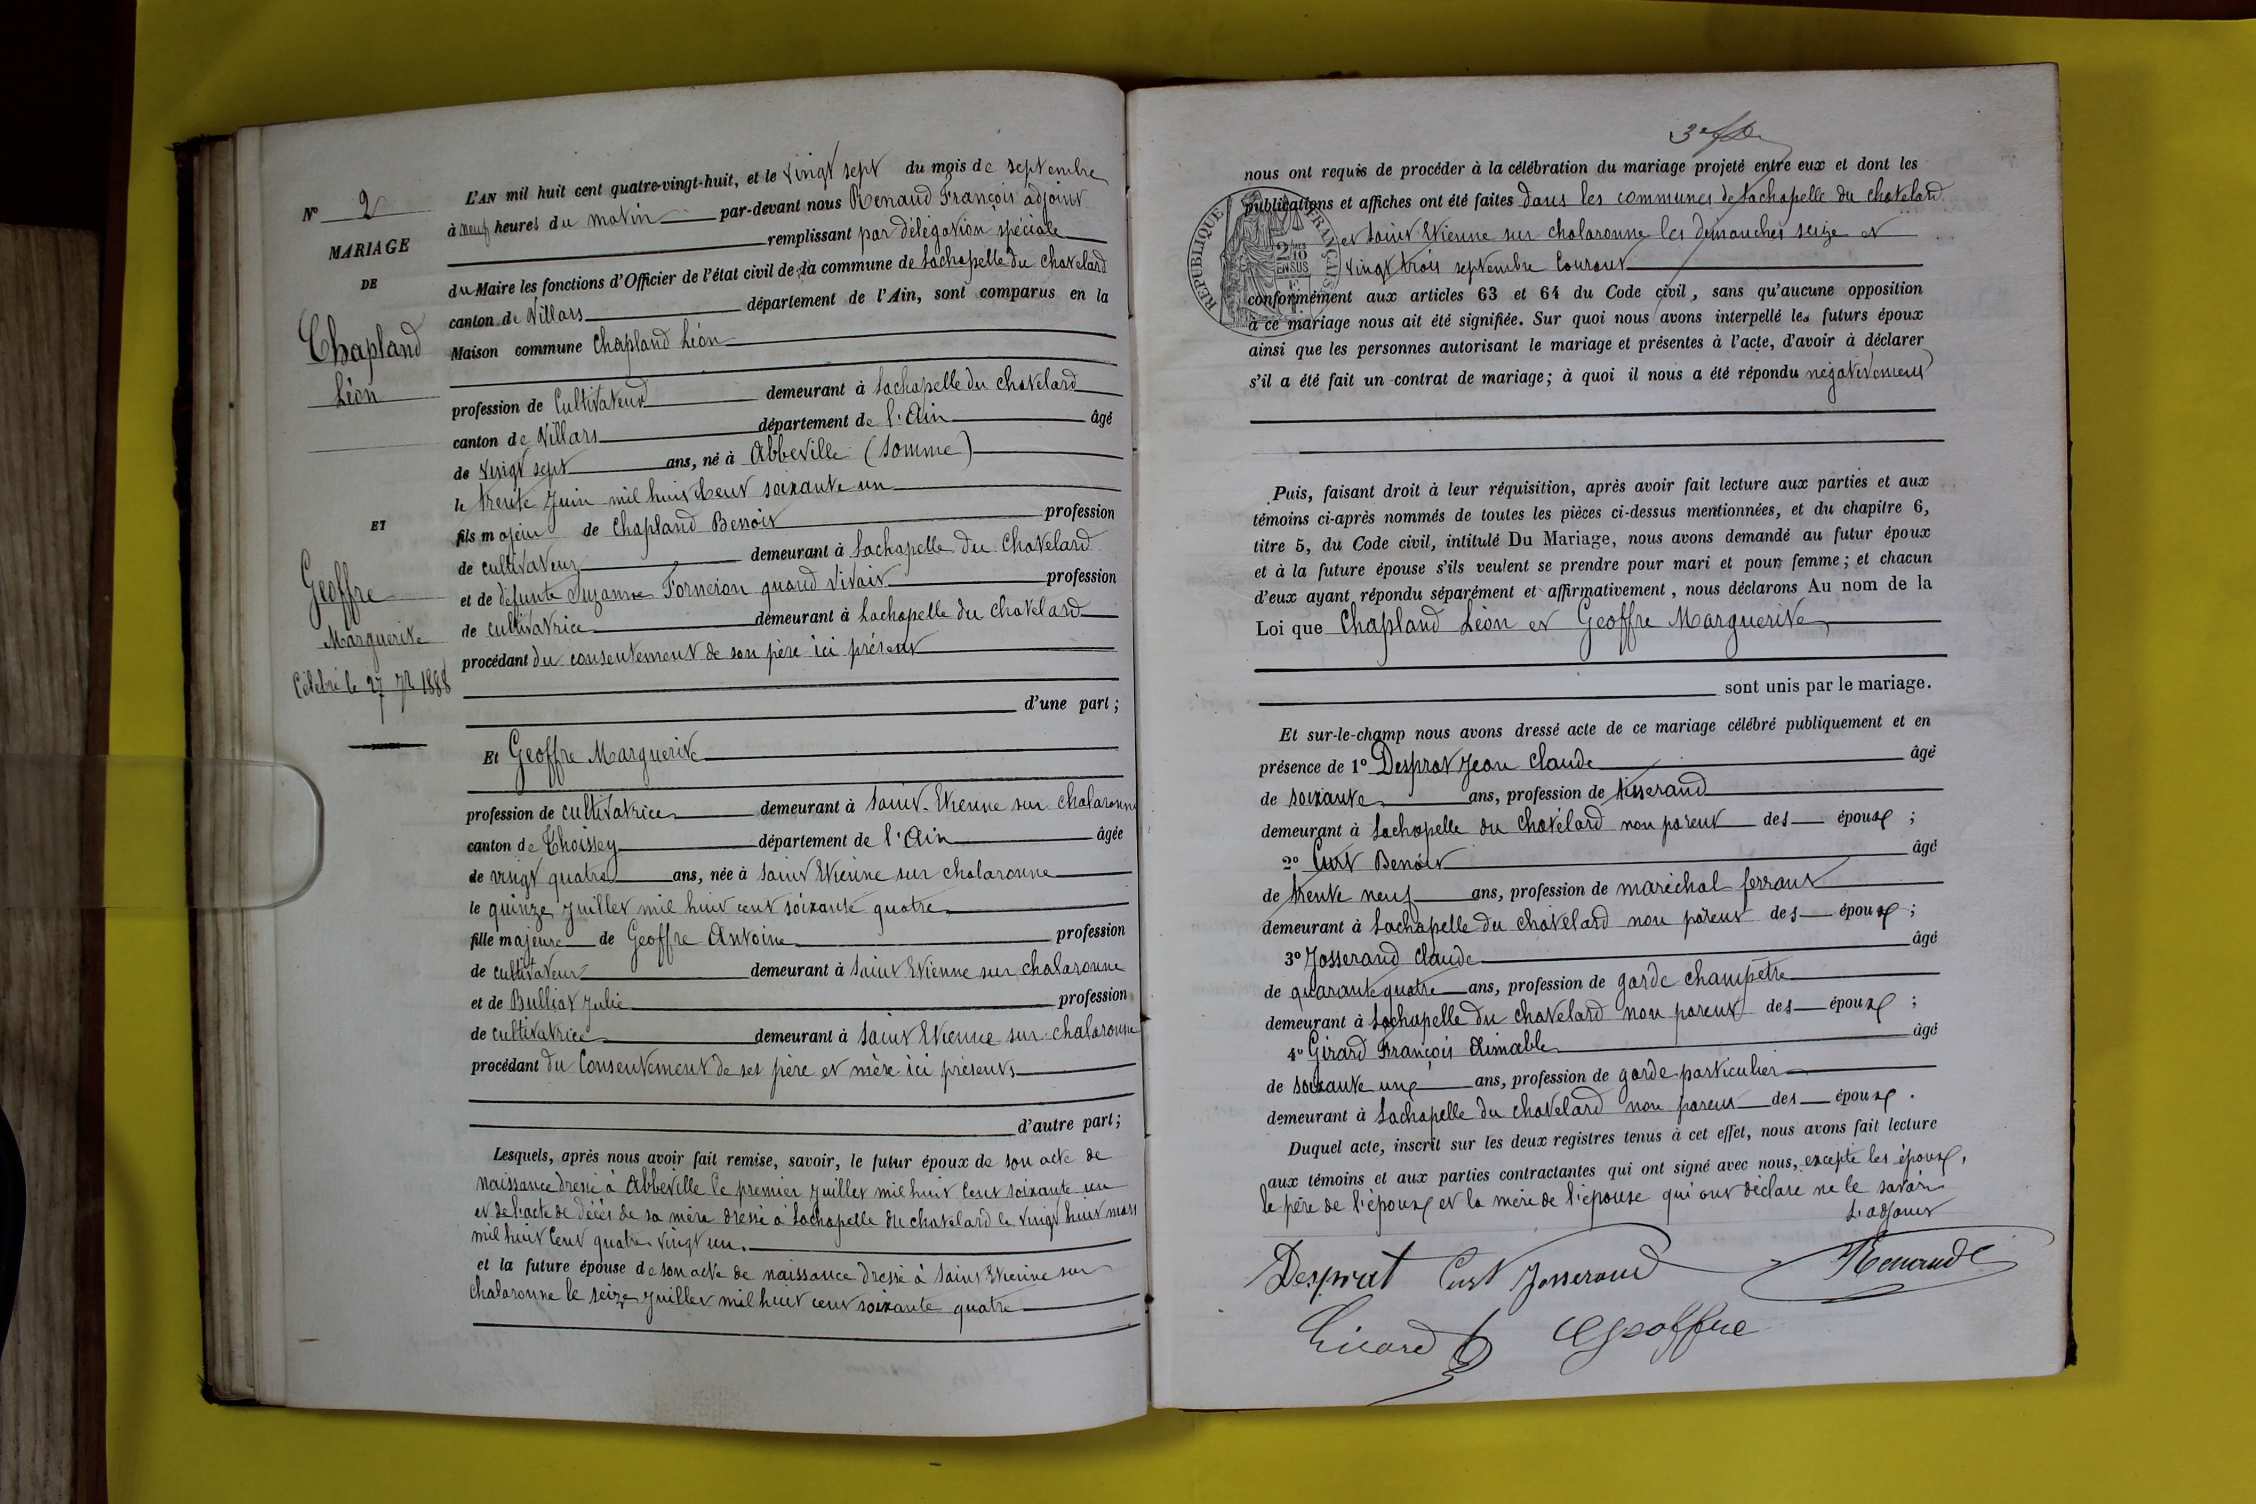 N° 2
MARIAGE
DE
Chapland
Léon
ET
Geoffre
Marguerite
Célébré le 27 7bre 1888
L'AN mil huit cent quatre-vingt-huit, et le vingt sept du mois de septembre
à neuf heures du matin par-devant nous Renaud François adjoint
remplissant par délégation spéciale
du Maire les fonctions d'Officier de l'état civil de la commune de Lachapelle du Chatelard
canton de Villars département de l'Ain, sont comparus en la
Maison commune Chapland Léon
profession de Cultivateur demeurant à Lachapelle du Chatelard
canton de Villars département de l'Ain âgé
de vingt sept ans, né à Abbeville (Somme)
le trente Juin mil huit Cent soixante un
fils majeur de Chapland Benoit profession
de cultivateur demeurant à Lachapelle du Chatelard
et de défunte Suzanne Forneron quand vivait profession
de cultivatrice demeurant à Lachapelle du Chatelard
procédant du consentement de son père ici présent
d'une part ;
Et Geoffre Marguerite
profession de cultivatrice demeurant à Saint-Etienne sur chalaronne
canton de Thoissey département de l'Ain âgée
de vingt quatre ans, née à Saint Etienne sur chalaronne
le quinze Juillet mil huit cent soixante quatre
fille majeure de Geoffre Antoine profession
de cultivateur demeurant à Saint Etienne sur chalaronne
et de Bulliat Julie profession
de cultivatrice demeurant à Saint Etienne sur chalaronne
procédant du Consentement de ses père et mère ici présents
d'autre part ;
Lesquels, après nous avoir fait remise, savoir, le futur époux de son acte de
naissance dressé à Abbeville le premier Juillet mil huit Cent soixante un
et de l'acte de décès de sa mère dressé à Lachapelle du Chatelard le vingt huit mars
mil huit Cent quatre vingt un.
et la future épouse de son acte de naissance dressé à Saint Etienne sur
chalaronne le seize Juillet mil huit cent soixante quatre
nous ont requis de procéder à la célébration du mariage projeté entre eux et dont les
publications et affiches ont été faites dans les communes de Lachapelle du Chatelard
et Saint Etienne sur chalaronne les dimanches seize et
vingt trois septembre Courant
RÉPUBLIQUE FRANÇAISE
conformément aux articles 63 et 64 du Code civil, sans qu'aucune opposition
à ce mariage nous ait été signifiée. Sur quoi nous avons interpellé les futurs époux
ainsi que les personnes autorisant le mariage et présentes à l'acte, d'avoir à déclarer
s'il a été fait un contrat de mariage ; à quoi il nous a été répondu négativement
Puis, faisant droit à leur réquisition, après avoir fait lecture aux parties et aux
témoins ci-après nommés de toutes les pièces ci-dessus mentionnées, et du chapitre 6,
titre 5, du Code civil, intitulé Du Mariage, nous avons demandé au futur époux
et à la future épouse s'ils veulent se prendre pour mari et pour femme ; et chacun
d'eux ayant répondu séparément et affirmativement, nous déclarons Au nom de la
Loi que Chapland Léon et Geoffre Marguerite
sont unis par le mariage.
Et sur-le-champ nous avons dressé acte de ce mariage célébré publiquement et en
présence de 1° Desprat Jean Claude âgé
de soixante ans, profession de tisserand
demeurant à Lachapelle du Chatelard non parent des époux ;
2° Curt Benoit âgé
de trente neuf ans, profession de maréchal ferrant
demeurant à Lachapelle du Chatelard non parent des époux ;
3° Josserand Claude âgé
de quarante quatre ans, profession de garde champêtre
demeurant à Lachapelle du Chatelard non parent des époux ;
4° Girard François Aimable âgé
de soixante un ans, profession de garde-particulier
demeurant à Lachapelle du Chatelard non parent des époux .
Duquel acte, inscrit sur les deux registres tenus à cet effet, nous avons fait lecture
aux témoins et aux parties contractantes qui ont signé avec nous, excepté les époux,
le père de l'époux et la mère de l'épouse qui ont déclaré ne le savoir
L'adjoint
Desprat Curt Josserand Renaud
Girard Geoffre